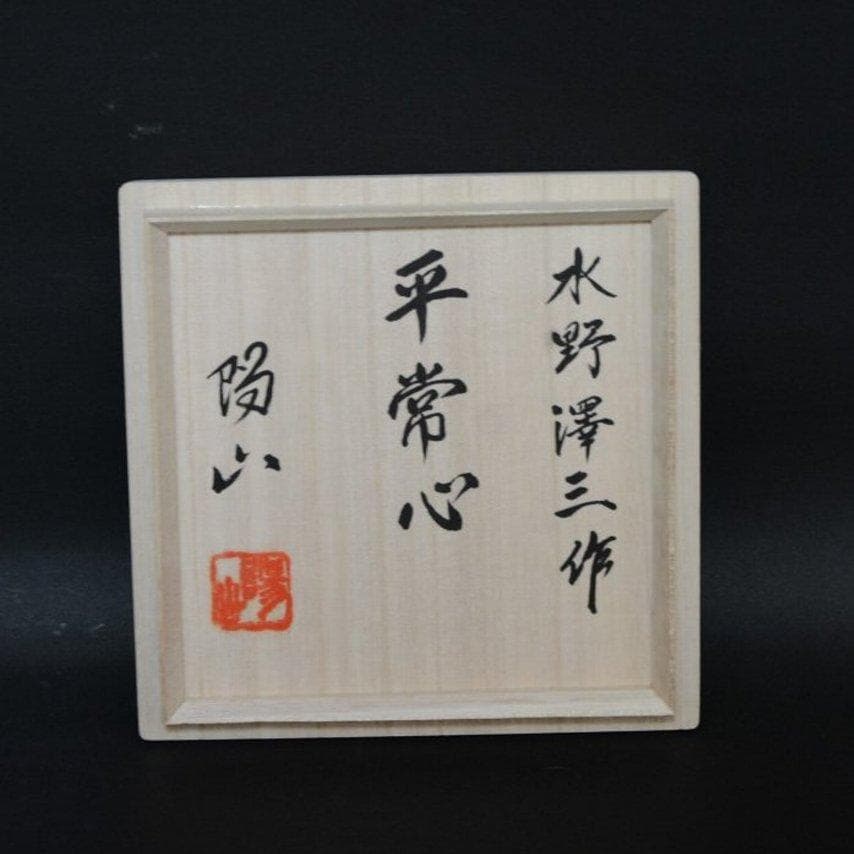 水野澤三作
平常心
陽山